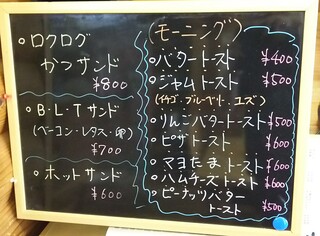 ○ロクログ
かつサンド
¥800
○B・L・Tサンド
(ベーコン・レタス・卵)
¥700
○ホットサンド
¥600
(モーニング)
○バタートースト ¥400
○ジャムトースト ¥500
(イチゴ・ブルーベリー・ユズ)
○りんごバタートースト ¥500
○ピザトースト ¥600
○マヨたまトースト ¥600
○ハムチーズトースト ¥600
○ピーナッツバター
トースト ¥500